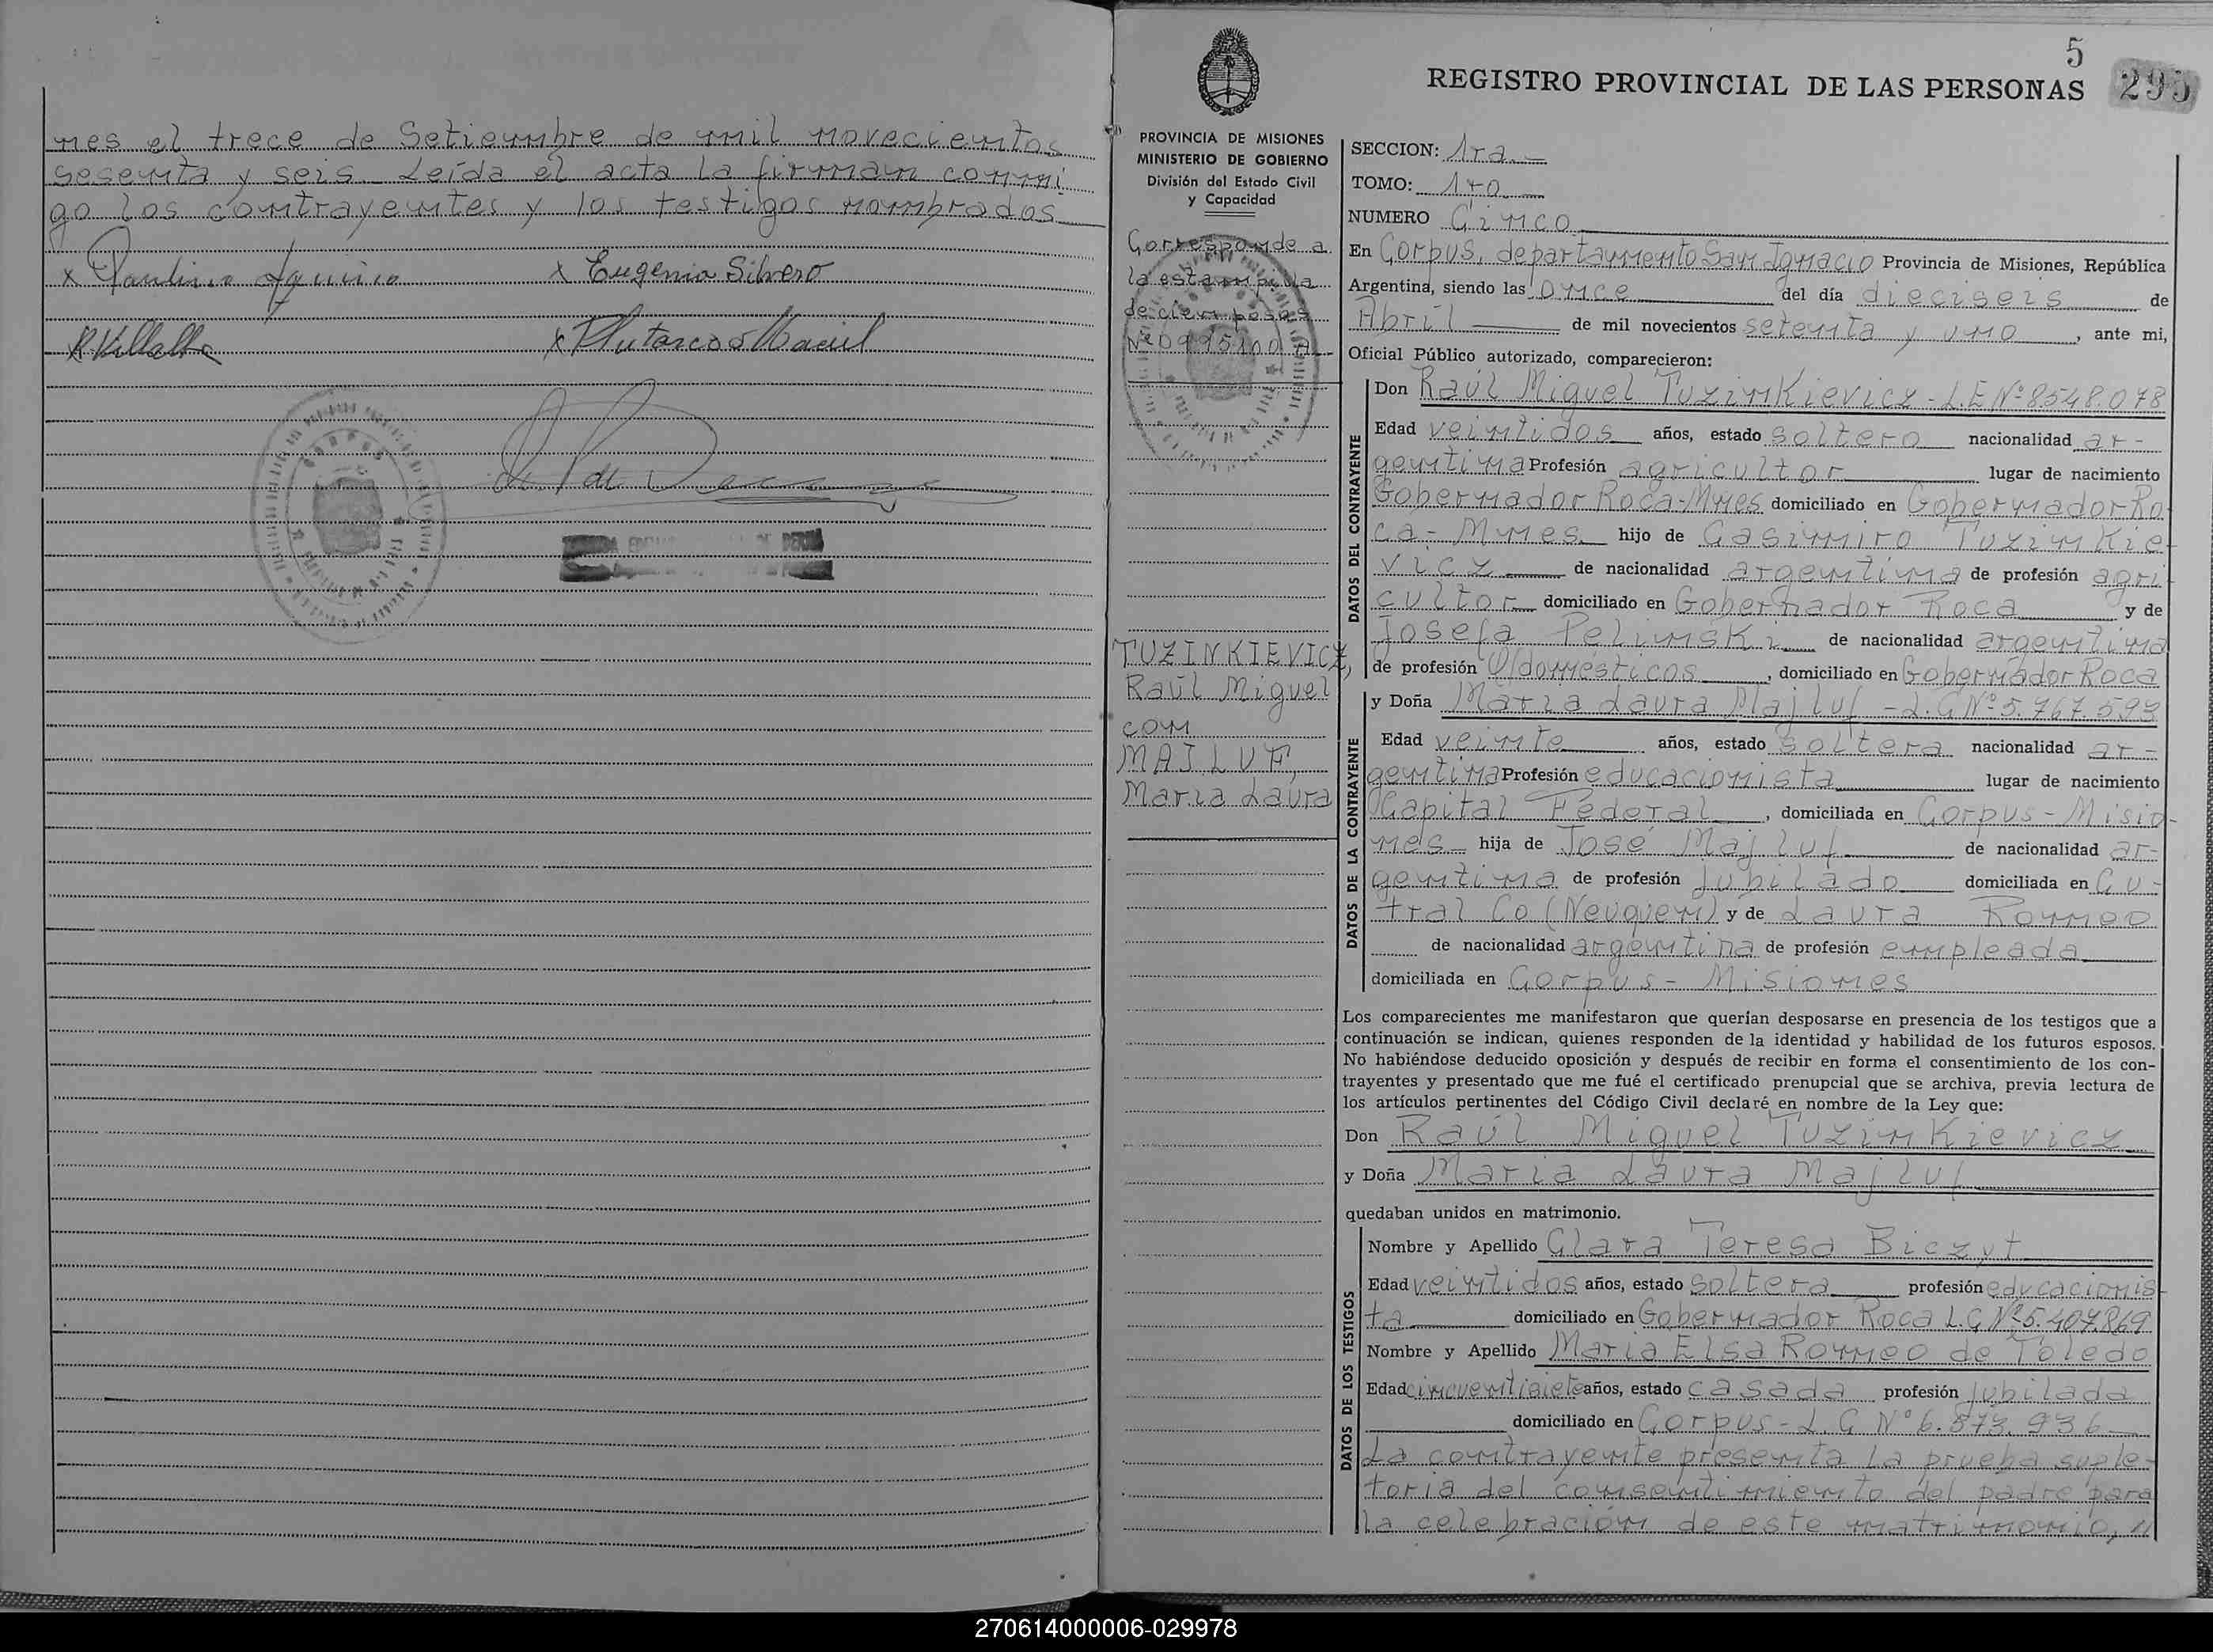 nes el trece de Setiembre de mil novecientos
sesenta y seis. Leída el acta la firman conmi
go los contrayentes y los testigos nombrados
x Paulino Aquino x Eugenia Silvero
R Villalba x Plutarco Maciel
5
REGISTRO PROVINCIAL DE LAS PERSONAS 295
PROVINCIA DE MISIONES
MINISTERIO DE GOBIERNO
División del Estado Civil
y Capacidad
Corresponde a
la estampilla
de cien pesos
Nº 0995100 A
TUZINKIEVICZ,
Raúl Miguel
con
MAJLUF,
Maria Laura
SECCION: 1ra.
TOMO: 1ro
NUMERO Cinco
En Corpus, departamento San Ignacio Provincia de Misiones, República
Argentina, siendo las once del día dieciseis de
Abril de mil novecientos setenta y uno, ante mi,
Oficial Público autorizado, comparecieron:
DATOS DEL CONTRAYENTE
Don Raúl Miguel Tuzinkievicz - L.E Nº 8.548.078
Edad veintidos años, estado soltero nacionalidad ar-
gentina Profesión agricultor lugar de nacimiento
Gobernador Roca-Mnes domiciliado en Gobernador Ro
ca - Mnes. hijo de Casimiro Tuzinkie
vicz de nacionalidad argentina de profesión agri
cultor domiciliado en Gobernador Roca y de
Josefa Pelinski de nacionalidad argentina
de profesión Q/domesticos, domiciliado en Gobernador Roca
DATOS DE LA CONTRAYENTE
y Doña Maria Laura Majluf - L.C Nº 5.767.593
Edad veinte años, estado soltera nacionalidad ar-
gentina Profesión educacionista lugar de nacimiento
Capital Federal, domiciliada en Corpus - Misio-
nes hija de José Majluf de nacionalidad ar-
gentina de profesión jubilado domiciliada en Cu-
tral Co (Neuquen) y de Laura Romeo
de nacionalidad argentina de profesión empleada
domiciliada en Corpus - Misiones
Los comparecientes me manifestaron que querían desposarse en presencia de los testigos que a
continuación se indican, quienes responden de la identidad y habilidad de los futuros esposos.
No habiéndose deducido oposición y después de recibir en forma el consentimiento de los con-
trayentes y presentado que me fué el certificado prenupcial que se archiva, previa lectura de
los artículos pertinentes del Código Civil declaré en nombre de la Ley que:
Don Raúl Miguel Tuzinkievicz
y Doña Maria Laura Majluf
quedaban unidos en matrimonio.
DATOS DE LOS TESTIGOS
Nombre y Apellido Clara Teresa Biczyt
Edad veintidos años, estado soltera profesión educacionis
ta domiciliado en Gobernador Roca L.C Nº 5.407.869
Nombre y Apellido Maria Elsa Romeo de Toledo
Edad cincuentisiete años, estado casada profesión jubilada
domiciliado en Corpus - L.C Nº 6.573.936
La contrayente presenta la prueba suple-
toria del consentimiento del padre para
la celebración de este matrimonio, //
270614000006-029978